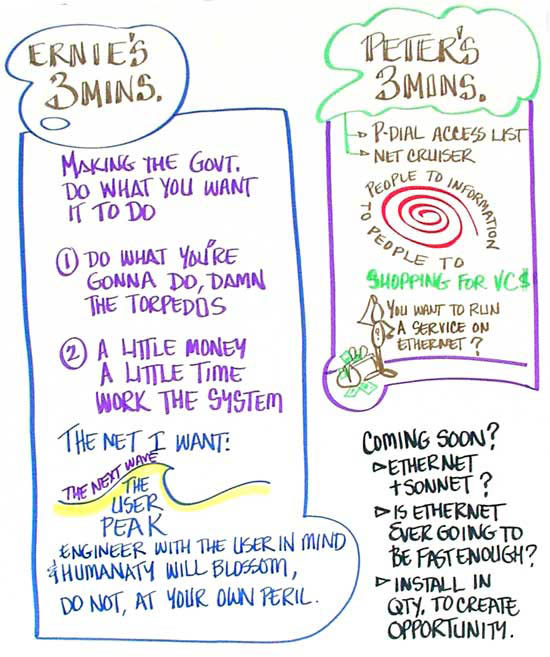 ERNIE'S
3MINS.
MAKING THE GOVT.
DO WHAT YOU WANT
IT TO DO
① DO WHAT YOU'RE
GONNA DO, DAMN
THE TORPEDOS
② A LITTLE MONEY
A LITTLE TIME
WORK THE SYSTEM
THE NET I WANT:
THE NEXT WAVE
THE
USER
PEAK
ENGINEER WITH THE USER IN MIND
& HUMANATY WILL BLOSSOM,
DO NOT, AT YOUR OWN PERIL.
PETER'S
3MINS.
P-DIAL ACCESS LIST
NET CRUISER
PEOPLE TO INFORMATION
TO PEOPLE TO
SHOPPING FOR VC$
YOU WANT TO RUN
A SERVICE ON
ETHERNET?
COMING SOON?
▷ ETHERNET
+ SONNET?
▷ IS ETHERNET
EVER GOING TO
BE FAST ENOUGH?
▷ INSTALL IN
QTY. TO CREATE
OPPORTUNITY.